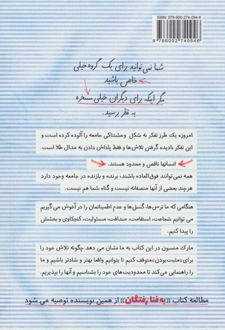 ISBN: 978-600-274-094-6
9 786002 740946
شما نمی‌توانید برای یک گروه خیلی
خاص باشید
مگر اینکه برای دیگران خیلی مسخره
به نظر برسید.
امروزه یک طرز تفکر به شکل وحشتناکی جامعه را آلوده کرده است و
این تفکر نادیده گرفتن تلاش‌ها و فقط پاداش دادن به مدال طلا است.
انسانها ناقص و محدود هستند.
همه نمی‌توانند فوق‌العاده باشند، برنده و بازنده در جامعه وجود دارد
هرچند بعضی از آنها منصفانه نیست و گناه شما هم نیست.
هنگامی که ما ترس‌ها، گسل‌ها و عدم اطمینانمان را در آغوش می گیریم
می توانیم شجاعت، استقامت، صداقت، مسئولیت، کنجکاوی و بخشش
را پیدا کنیم.
مارک منسون در این کتاب به ما نشان می دهد چگونه تلاش خود را
برای «مثبت‌بودن» متوقف کنیم تا بتوانیم واقعا بهتر و شادتر باشیم و ما
را راهنمایی می‌کند تا محدودیت‌های خود را بشناسیم و آنها را بپذیریم.
مطالعه کتاب «به فنا رفتگان» از همین نویسنده توصیه می شود